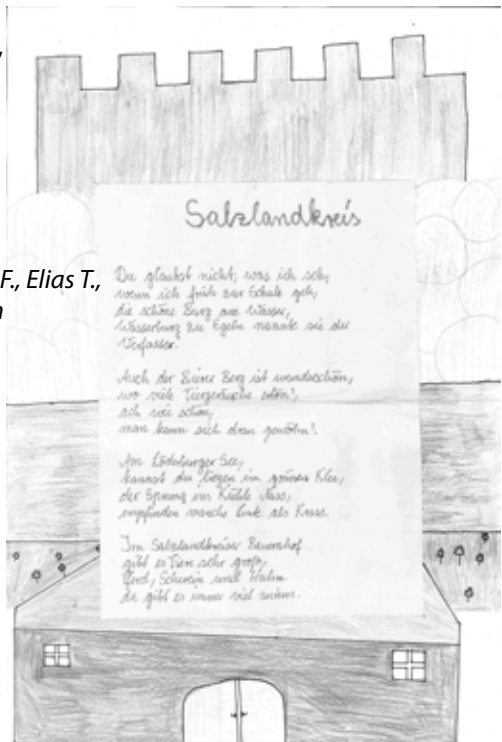 F., Elias T.,
Salzlandkreis
Du glaubst nicht, was ich seh,
wenn ich früh zur Schule geh,
die schöne Burg am Wasser,
Wasserburg zu Egeln nannte sie der
Verfasser.
Auch der Bierer Berg ist wunderschön,
wo viele Tiergeräusche
ach wie schön,
man kann sich dran gewöhn'.
Am Löderburger See,
kannst du liegen im grünen Klee,
der Sprung ins Kühle Nass,
empfinden manche Leute als Krass.
Im Salzlandkreiser Bauernhof
gibt es Tiere sehr groß,
Pferd, Schwein und Hahn
da gibt es immer viel